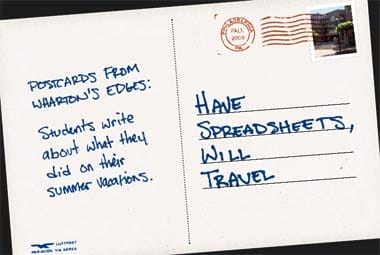 POSTCARDS FROM
WHARTON'S EDGES:
Students write
about what they
did on their
summer vacations.
PHILADELPHIA
FALL
2005
PA
HAVE
SPREADSHEETS,
WILL
TRAVEL
LUFTPOST
PAR AVION VIA AEREA